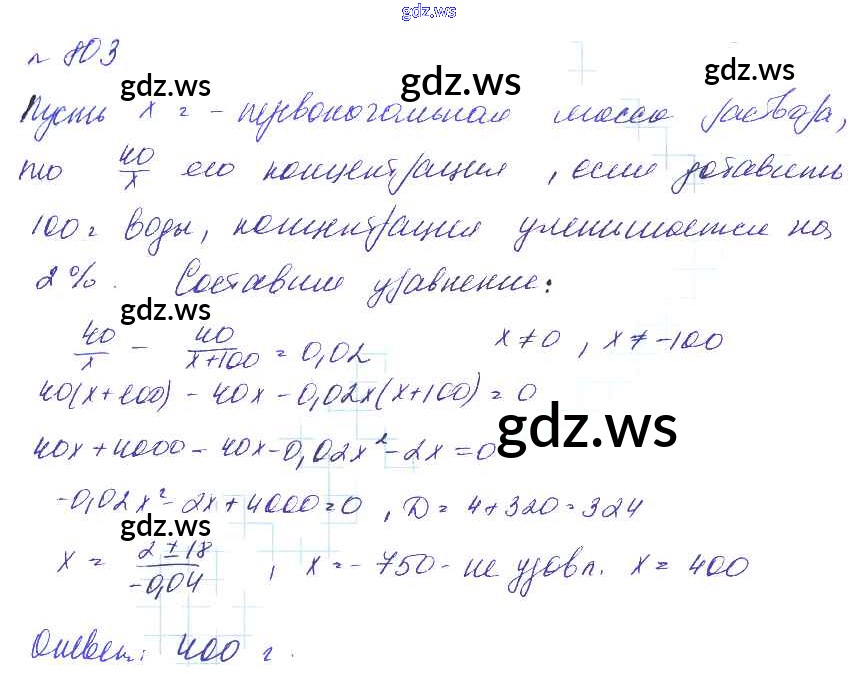 gdz.ws
№ 803
gdz.ws gdz.ws gdz.ws
Пусть x г - первоначальная масса раствора,
то 40/x его концентрация, если добавить
100 г воды, концентрация уменьшается на
2%. Составим уравнение:
gdz.ws
40/x - 40/(x+100) = 0,02 x ≠ 0, x ≠ -100
40(x+100) - 40x - 0,02x(x+100) = 0
gdz.ws
40x + 4000 - 40x - 0,02x² - 2x = 0
-0,02x² - 2x + 4000 = 0, D = 4 + 320 = 324
gdz.ws
x = (2 ± 18)/(-0,04), x = -750 - не удовл. x = 400
Ответ: 400 г.